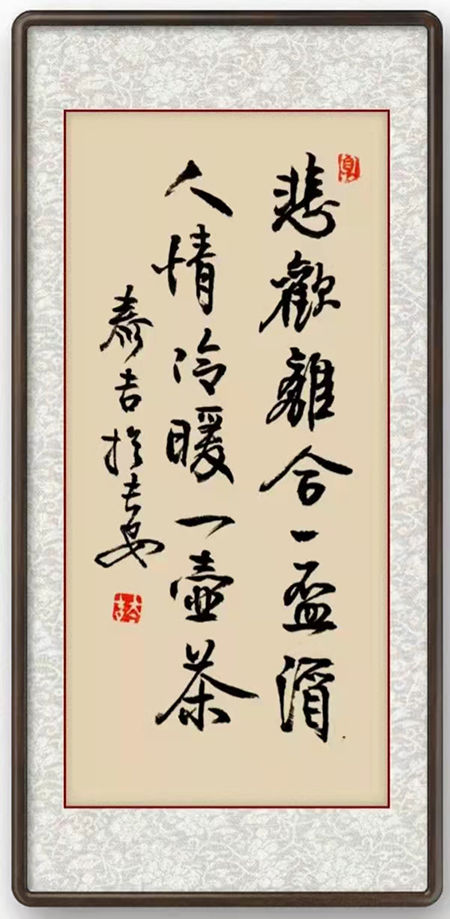 悲歡離合一盃酒
人情冷暖一壺茶
泰吉於长安